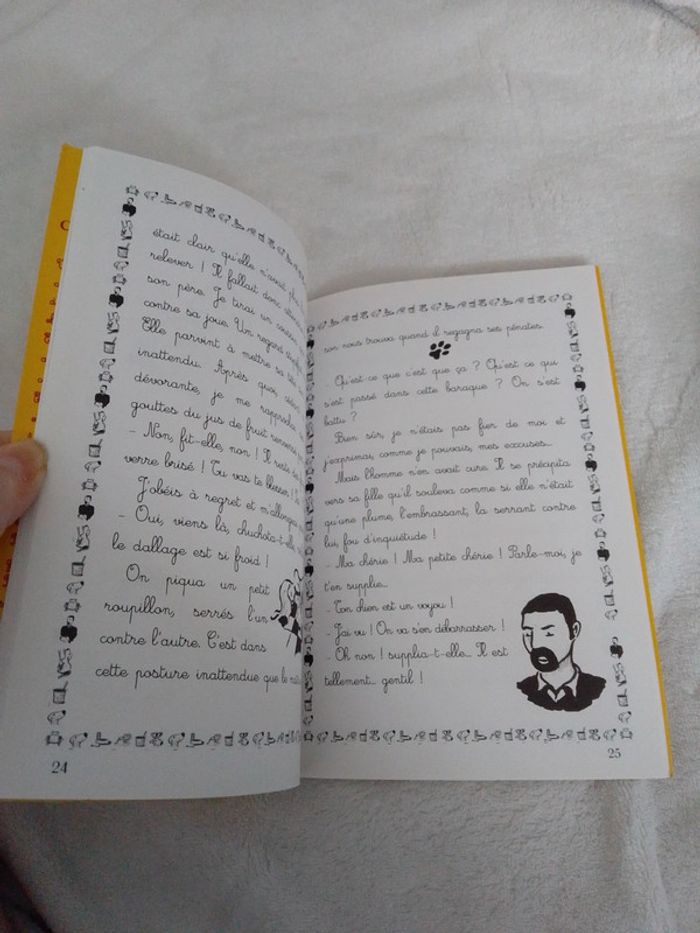 était clair qu'elle n'avait plus
relever ! Il fallait donc
son père. Je tirai un
contre sa joue. Un regard
Elle parvint à mettre sa
inattendu. Après quoi,
dévorante, je me rapprochai
gouttes du jus de fruit
– Non, fit-elle, non ! Il reste
verre brisé ! Tu vas te blesser !
J'obéis à regret et m'allongeai
– Oui, viens là, chuchota-t-elle
le dallage est si froid !
On piqua un petit
roupillon, serrés l'un
contre l'autre. C'est dans
cette posture inattendue que le
24
son nous trouva quand il regagna ses pénates.
– Qu'est-ce que c'est que ça ? Qu'est ce qui
s'est passé dans cette baraque ? On s'est
battu ?
Bien sûr, je n'étais pas fier de moi et
j'exprimai, comme je pouvais, mes excuses...
Mais l'homme n'en avait cure. Il se précipita
vers sa fille qu'il souleva comme si elle n'était
qu'une plume, l'embrassant, la serrant contre
lui, fou d'inquiétude !
– Ma chérie ! Ma petite chérie ! Parle-moi, je
t'en supplie...
– Ton chien est un voyou !
– J'ai vu ! On va s'en débarrasser !
– Oh non ! supplia-t-elle... Il est
tellement... gentil !
25